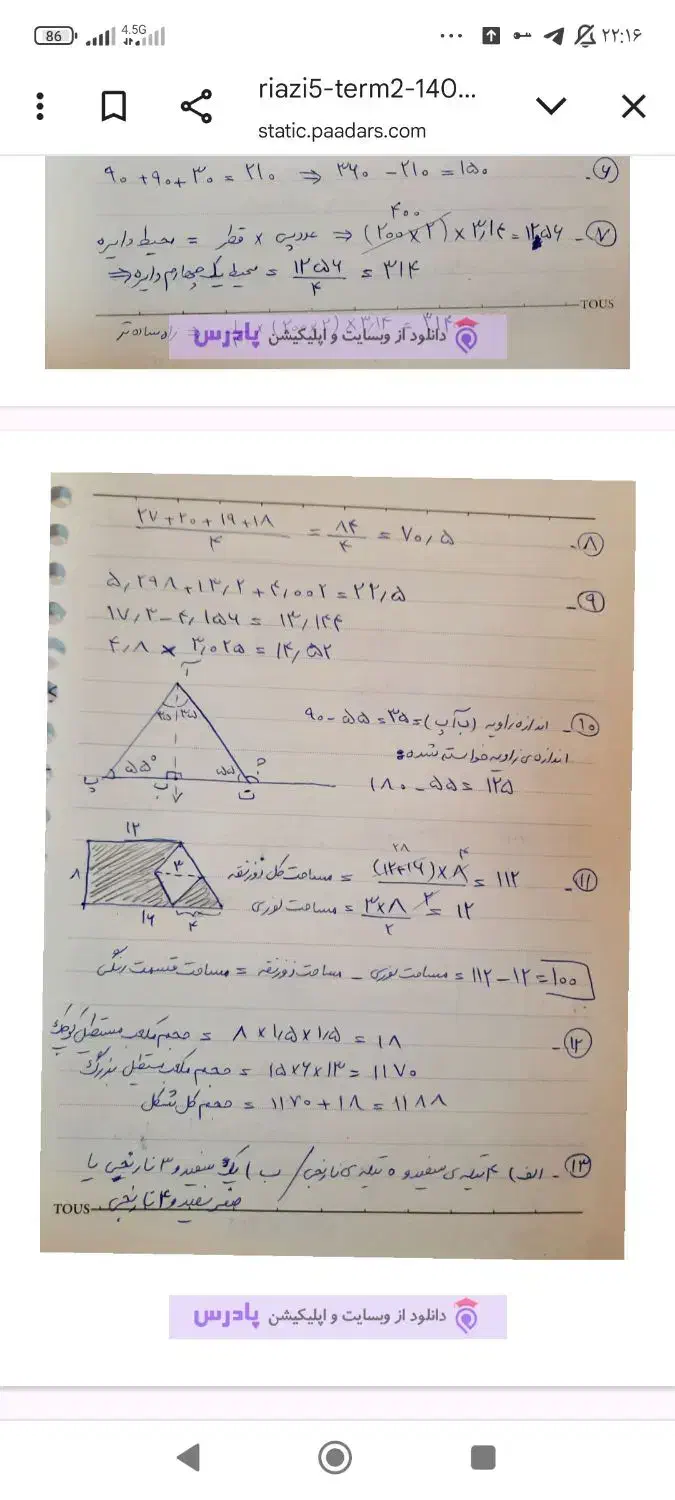 86 4.5G ... ۲۲:۱۶
riazi5-term2-140...
static.paadars.com
۶- ۹۰+۹۰+۳۰=۲۱۰ ⇒ ۳۶۰-۲۱۰=۱۵۰
۴۰۰
۷- محیط دایره = قطر × عددپی ⇒ (۲۰۰×۲)×۳٫۱۴=۱۲۵۶
محیط یک چهارم دایره ⇒ ۱۲۵۶/۴ = ۳۱۴
TOUS
راه ساده تر
دانلود از وبسایت و اپلیکیشن پادرس
۸- (۲۷+۲۰+۱۹+۱۸)/۴ = ۸۴/۴ = ۷۰٫۵
۹- ۵٫۲۹۸+۱۳٫۲+۴٫۰۰۲=۲۲٫۵
۱۷٫۳-۴٫۱۵۶=۱۳٫۱۴۴
۴٫۸×۳٫۰۲۵=۱۴٫۵۲
۱۰- اندازه زاویه (ب آ پ)=۳۵=۵۵-۹۰
اندازه‌ی زاویه خواسته شده:
۱۸۰-۵۵=۱۲۵
آ
۳۵ ۳۵
پ ۵۵° ب ۵۵ ت ?
۱۲
۸ ۳
۱۶ ۴
۲۸ ۴
۱۱- مساحت کل ذوزنقه = (۱۲+۱۶)×۸/۲ = ۱۱۲
مساحت لوزی = ۳×۸/۲ = ۱۲
مساحت قسمت رنگی = مساحت ذوزنقه - مساحت لوزی = ۱۱۲-۱۲=۱۰۰
۱۲- حجم مکعب مستطیل کوچک = ۸×۱٫۵×۱٫۵=۱۸
حجم مکعب مستطیل بزرگ = ۱۵×۶×۱۳=۱۱۷۰
حجم کل شکل = ۱۱۷۰+۱۸=۱۱۸۸
۱۳- الف) ۴ تیله ی سفید و ۵ تیله ی نارنجی / ب) یک سفید و ۳ نارنجی یا
صفر سفید و ۴ نارنجی
TOUS
دانلود از وبسایت و اپلیکیشن پادرس